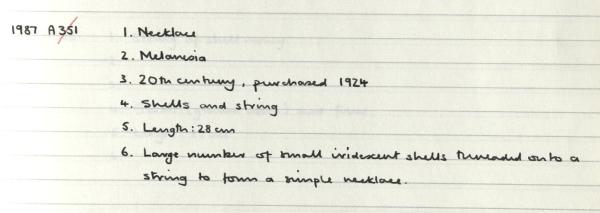 1987 A351 1. Necklace
2. Melanesia
3. 20th century, purchased 1924
4. Shells and string
5. Length: 28 cm
6. Large number of small iridescent shells threaded onto a
string to form a simple necklace.